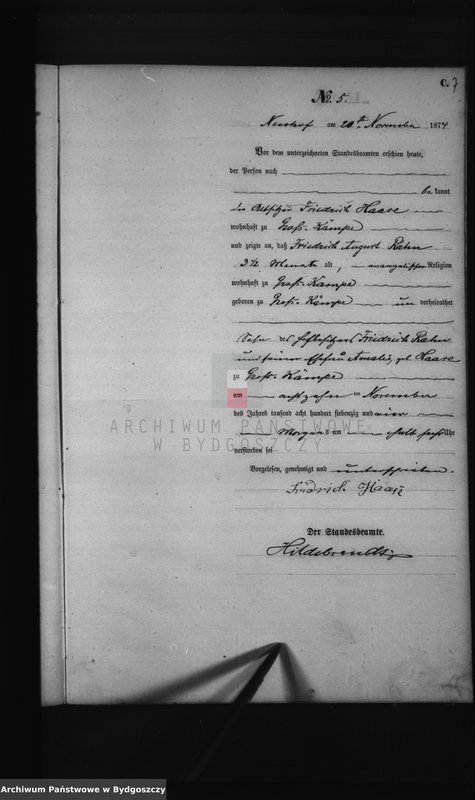 C. 7
No. 5.
Neuhof am 20ten November 1874
Vor dem unterzeichneten Standesbeamten erschien heute,
der Person nach
be kannt
der Altsitzer Friedrich Haase
wohnhaft zu Groß-Kämpe
und zeigte an, daß Friedrich August Rahn
3½ Monate alt, evangelischer Religion
wohnhaft zu Groß-Kämpe
geboren zu Groß-Kämpe un verheirathet
Sohn des Friedrich Rahn
und seiner Ehefrau Amalie, geb Haase
zu Groß-Kämpe
am achtzehn ten November
des Jahres tausend acht hundert siebenzig und vier
Morgens um halb sechs Uhr
verstorben sei
Vorgelesen, genehmigt und unterschrieben.
Fridrich Haase
Der Standesbeamte.
Hildebrandt
ARCHIWUM PAŃSTWOWE
W BYDGOSZCZY
Archiwum Państwowe w Bydgoszczy